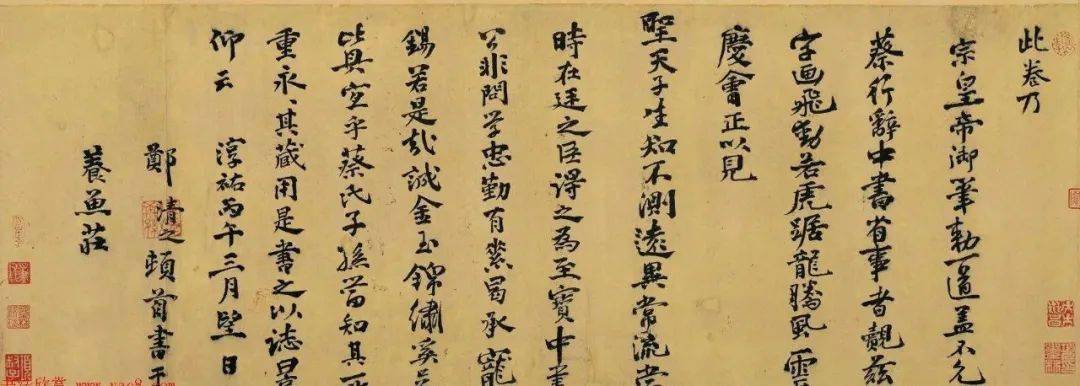 此卷乃
宗皇帝御筆勅一道盖不允
蔡行辭中書省事者觀茲
字画飛動若虎踞龍騰風雲
慶會正以見
聖天子生知不測遠異常流當
時在廷之臣得之為至寶中書
公非問学忠勤有素曷承寵
錫若是哉誠金玉錦繡奚足
比其空乎蔡氏子孫當知其所
重永其藏用是書之以誌景
仰云 淳祐丙午三月望日
鄭清之頓首書于
養魚莊